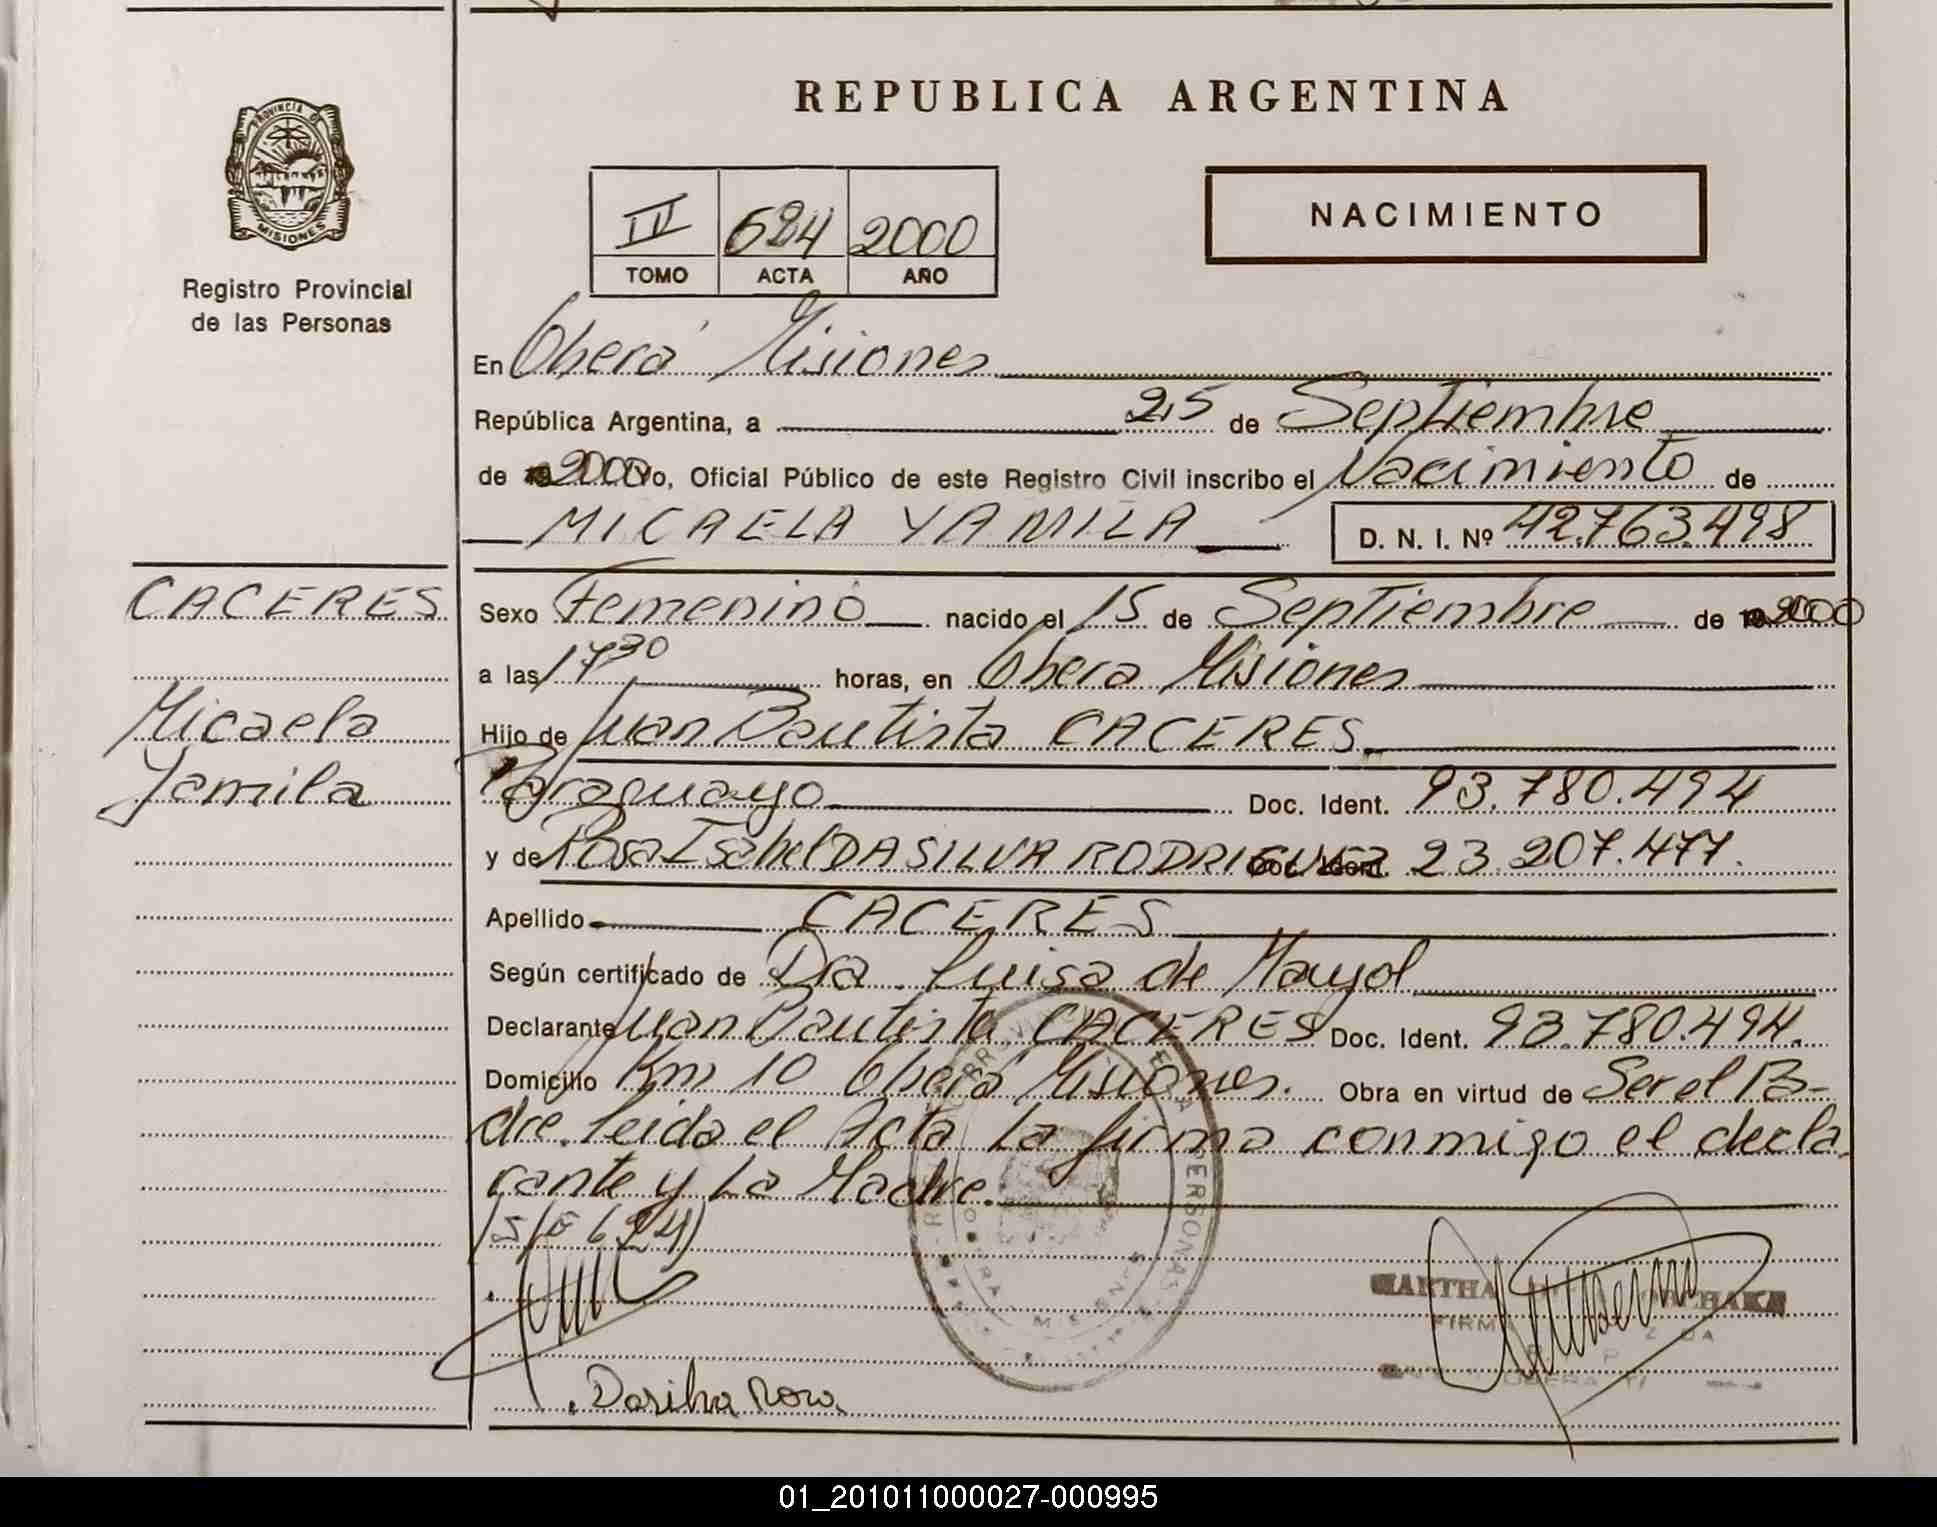 REPUBLICA ARGENTINA
PROVINCIA D
MISIONES
Registro Provincial
de las Personas
IV 684 2000
TOMO ACTA AÑO
NACIMIENTO
En Oberá Misiones
República Argentina, a 25 de Septiembre
de 2000 Yo, Oficial Público de este Registro Civil inscribo el Nacimiento de
MICAELA YAMILA D. N. I. Nº 42.763.498
CACERES
Micaela
Yamila
Sexo Femenino nacido el 15 de Septiembre de 2000
a las 17 30 horas, en Oberá Misiones
Hijo de Juan Bautista CACERES
Paraguayo Doc. Ident. 93.780.494
y de Rosa Isabel DA SILVA RODRIGUEZ Doc. Ident. 23.207.477.
Apellido CACERES
Según certificado de Dra Luisa de Mayol
Declarante Juan Bautista CACERES Doc. Ident. 93.780.494.
Domicilio Km 10 Oberá Misiones. Obra en virtud de Ser el Pa-
dre. Leida el Acta La firma conmigo el decla
rante y La Madre.
MARTHA
FIRMA
OBERA
01_201011000027-000995